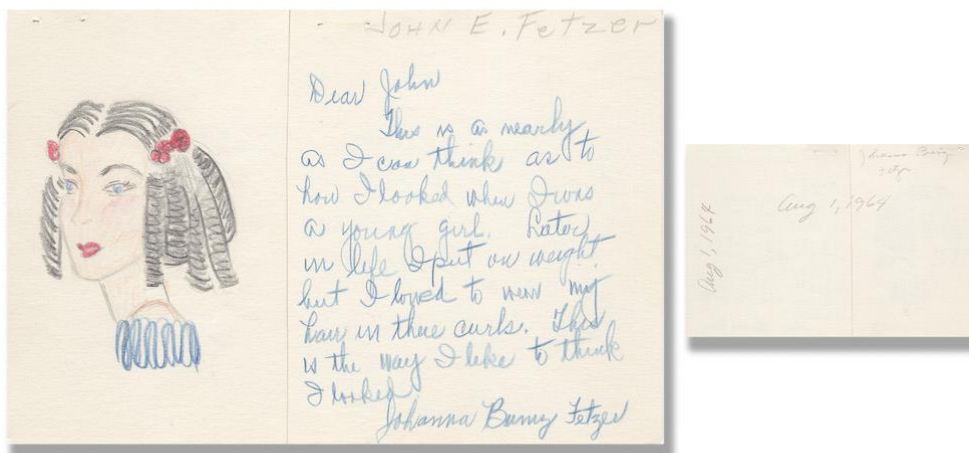 JOHN E. Fetzer
Dear John
This is as nearly
as I can think as to
how I looked when I was
a young girl. Later
in life I put on weight
but I loved to wear my
hair in these curls. This
is the way I like to think
I looked
Johanna Bunny Fetzer
Aug 1, 1964
Aug 1, 1964